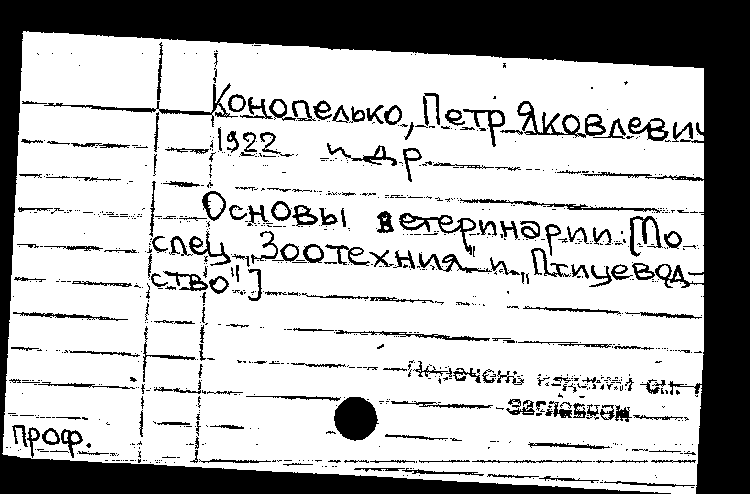 Конопелько, Петр Яковлевич
1922 и др
Основы ветеринарии [По
спец „Зоотехния" и „Птицевод-
ство"]
Перечень изданий см.
заглавием
проф.